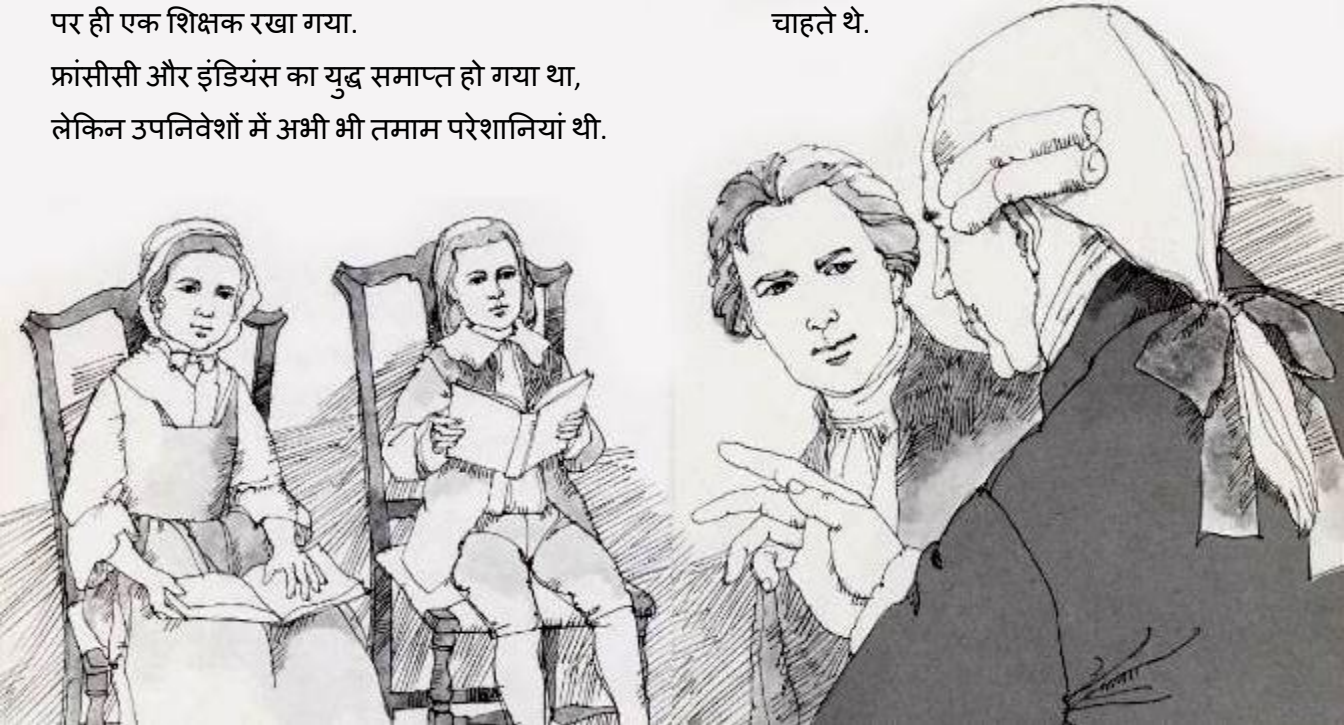 पर ही एक शिक्षक रखा गया.
फ्रांसीसी और इंडियंस का युद्ध समाप्त हो गया था,
लेकिन उपनिवेशों में अभी भी तमाम परेशानियां थी.
चाहते थे.